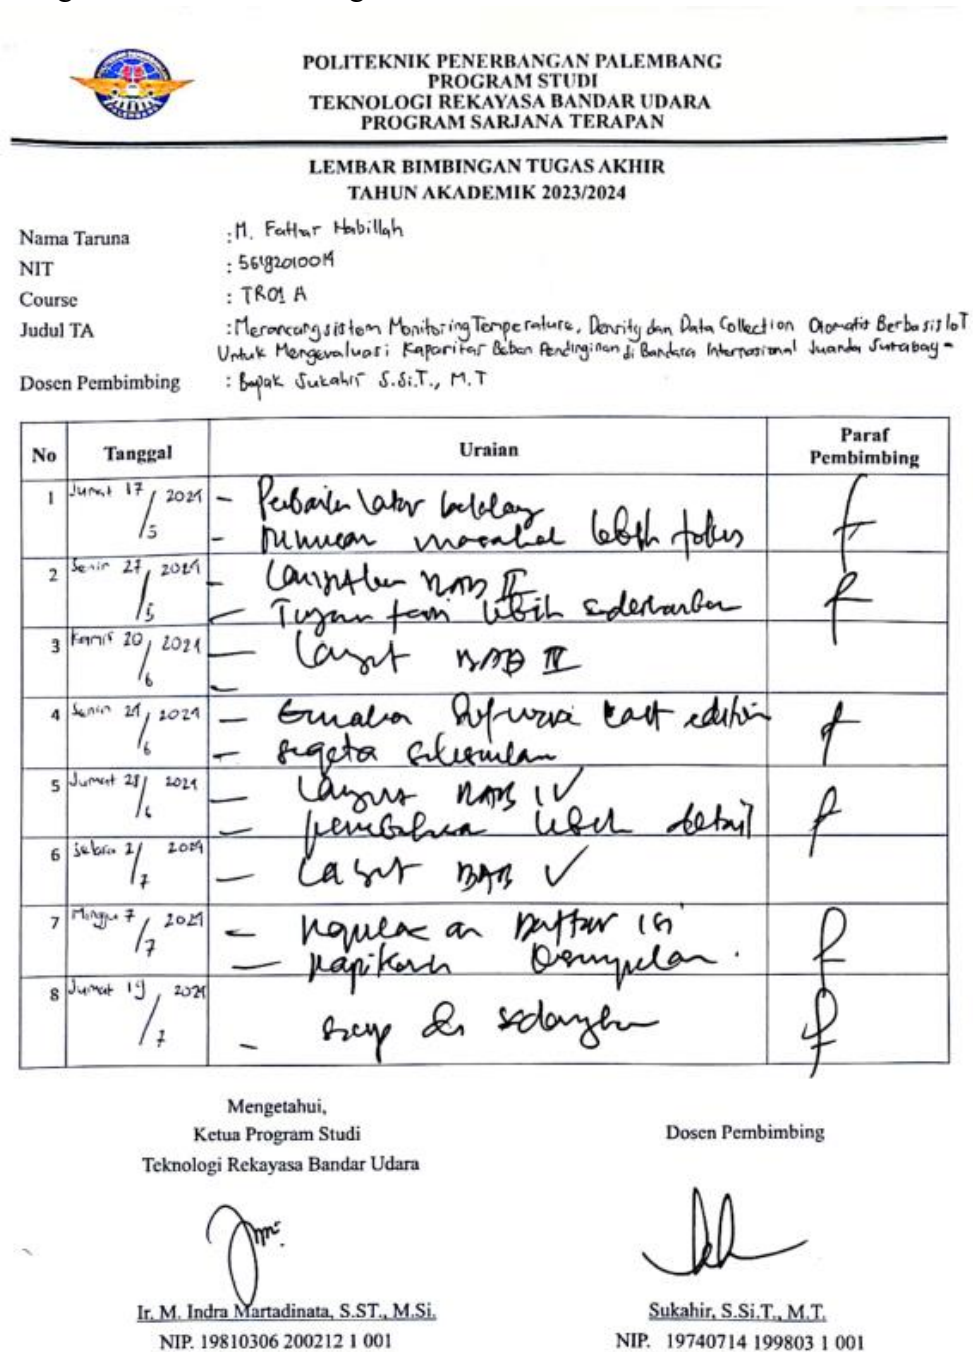 POLITEKNIK PENERBANGAN PALEMBANG
PROGRAM STUDI
TEKNOLOGI REKAYASA BANDAR UDARA
PROGRAM SARJANA TERAPAN
LEMBAR BIMBINGAN TUGAS AKHIR
TAHUN AKADEMIK 2023/2024
Nama Taruna : M. Fattar Habillah
NIT :
Course : TR01 A
Judul TA : Merancang sistem Monitoring Temperature, Density dan Data Collection Otomatis Berbasis IoT
Untuk Mengevaluasi Kapasitas Beban Pendinginan di Bandara Internasional Juanda Surabaya
Dosen Pembimbing : Bapak Sukahir S.Si.T., M.T
No Tanggal Uraian Paraf Pembimbing
1 Jumat 17/5 2024 - latar belakang
- masalah lebih fokus
2 Senin 27/5 2024 - BAB II
- lebih
3 Kamis 20/6 2024 - Lanjut BAB
4 Senin 24/6 2024 -
- segera
5 Jumat 28/6 2024 - BAB IV
- lebih detail
6 Selasa 2/7 2024 - Lanjut BAB V
7 Minggu 7/7 2024 - Daftar isi
- kesimpulan.
8 Jumat 19/7 2024 -
Mengetahui,
Ketua Program Studi
Teknologi Rekayasa Bandar Udara
Ir. M. Indra Martadinata, S.ST., M.Si.
NIP. 19810306 200212 1 001
Dosen Pembimbing
Sukahir, S.Si.T., M.T.
NIP. 19740714 199803 1 001